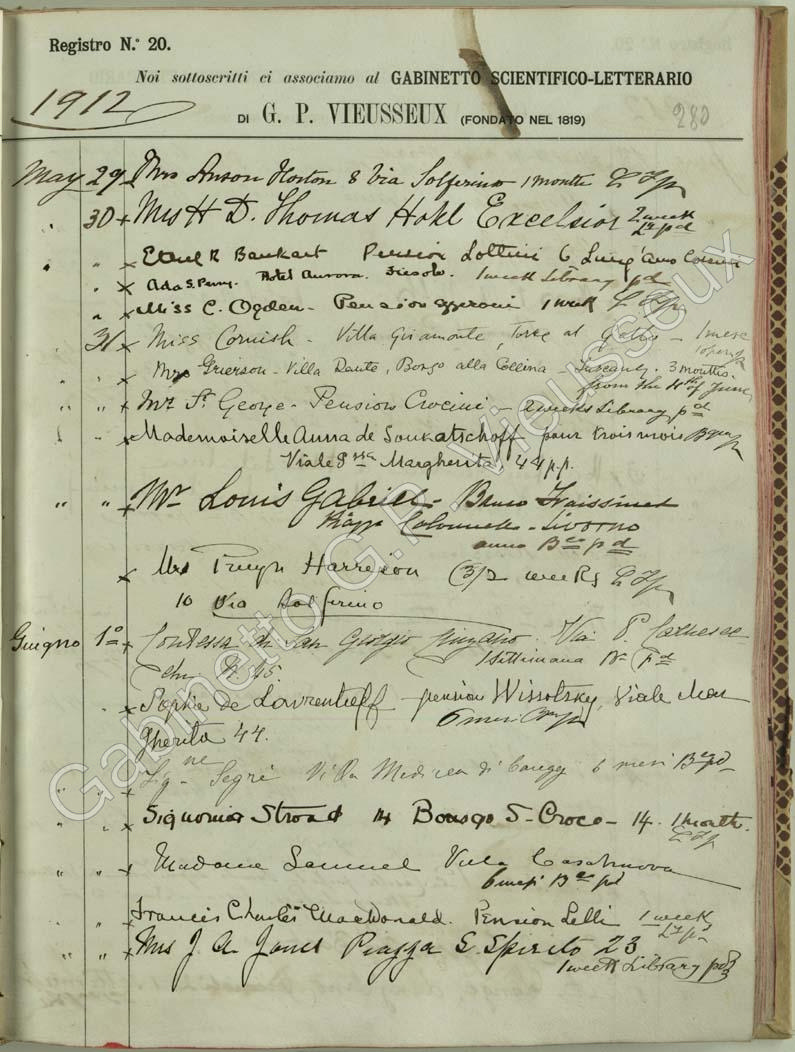 Registro N.º 20.
Noi sottoscritti ci associamo al GABINETTO SCIENTIFICO-LETTERARIO
1912
DI G. P. VIEUSSEUX (FONDATO NEL 1819)
280
May 29 Mrs Anson Horton 8 Via Solferino 1 month
" 30 Mrs H D. Thomas Hotel Excelsior 2 week
pd
" Ethel R Bankart Pension Lottini 6 Lung' Arno
" Ada S. Perry. Hotel Aurora. Fiesole. 1 week Library pd
" Miss C. Ogden - Pension 1 week
31 Miss Cornish - Villa Giramonte, Torre al Gallo - 1 mese
" Mrs Grierson - Villa Dante, Borgo alla Collina - Tuscany. 3 months.
from the 4th of June
" " Mr St George - Pension Crocini - 2 weeks Library pd
" Mademoiselle Anna de Soukatschoff pour trois mois
Viale Srta Margherita, 44 p.p.
" " Mr Louis Gabriel -
Piazza Colonnella - Livorno
anno pd
Mrs Pruyn Harrison (3/2 weeks
10 Via Solferino
Guigno 1º Contessa di San Giorgio Via P.
N. 45. 1 settimana pd
" Sophie de Lavrentieff pension Wissotzky, Viale Mar
6 mesi
gherita 44.
" " Segrè Villa Medicea di Careggi 6 mesi
" Signorina Stroad 14 Borgo S. Croce - 14. 1 month.
" " Madame Samuel Villa Casanuova
6 mesi pd
" Francis Charles MacDonald. Pension Lelli 1 week
" " Mrs J. A. Jones Piazza S. Spirito 23
1 week Library pd
Gabinetto G.P. Vieusseux